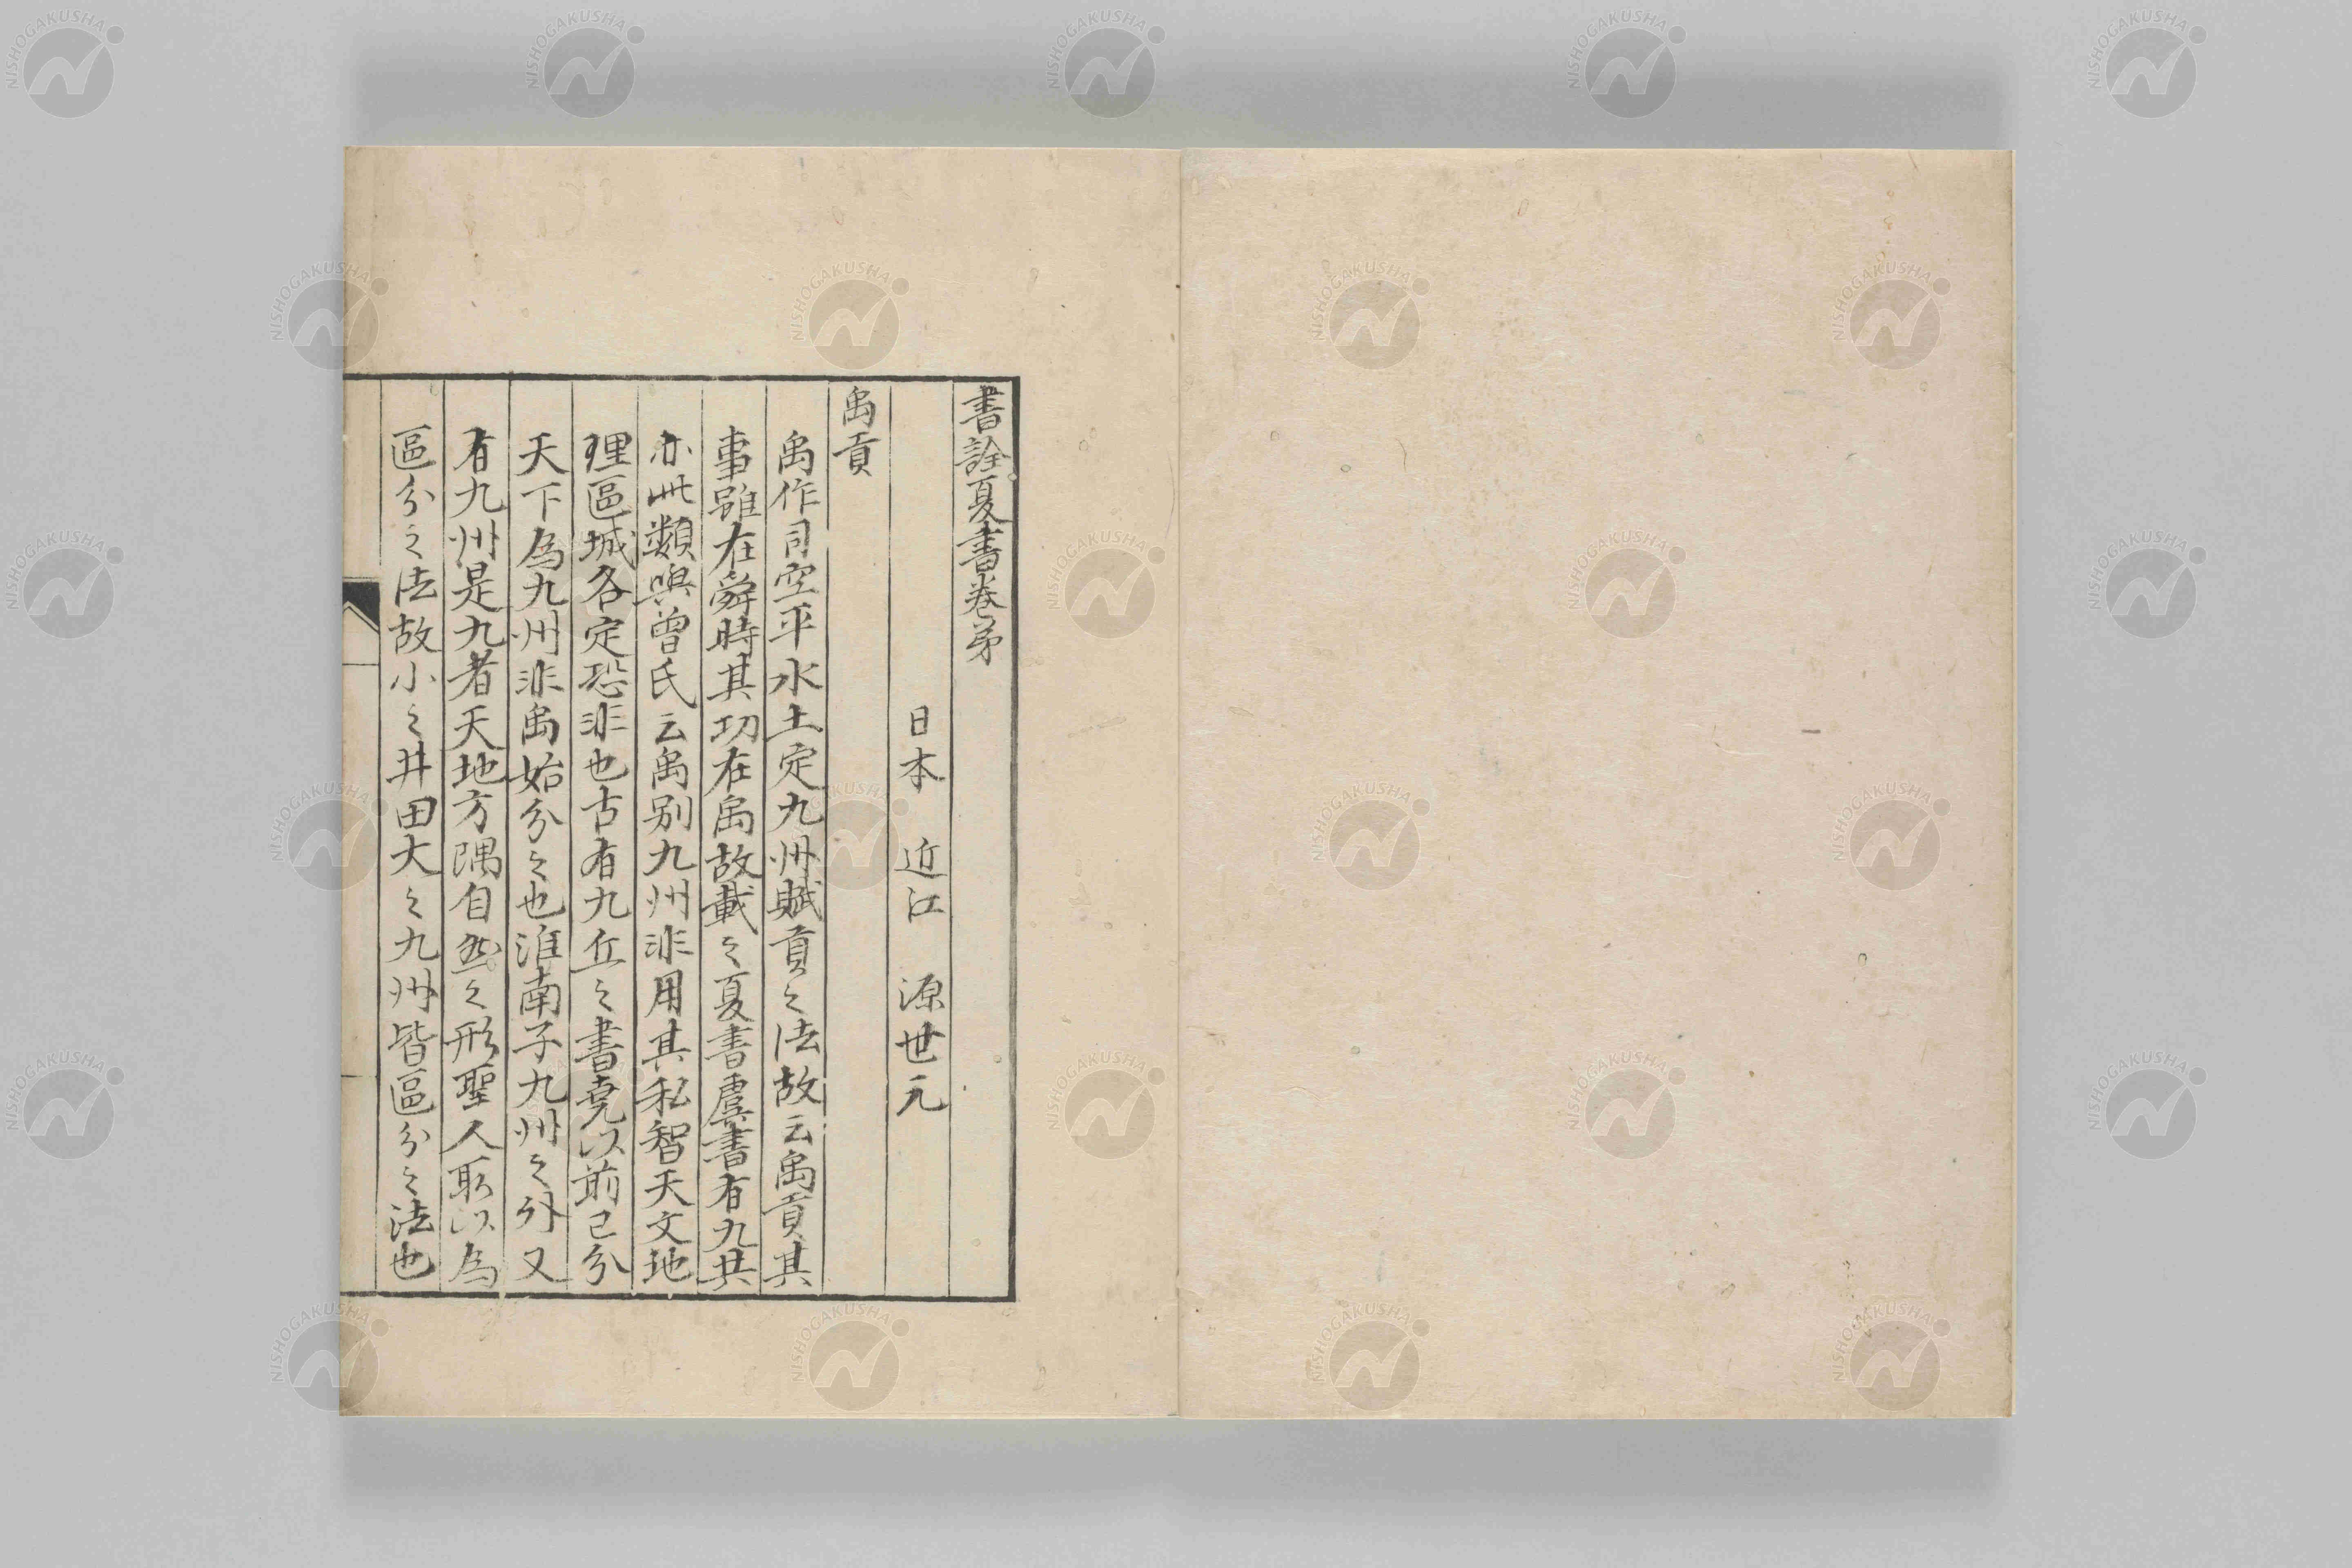 書詮夏書卷苐
日本　近江　源世元
禹貢
禹作司空平水土定九州賦貢之法故云禹貢其
事雖在舜時其功在禹故載之夏書虞書有九共
亦此類與曾氏云禹別九州非用其私智天文地
理區域各定恐非也古有九丘之書堯以前已分
天下為九州非禹始分之也淮南子九州之外又
有九州是九者天地方隅自然之形聖人取以為
區分之法故小之井田大之九州皆區分之法也